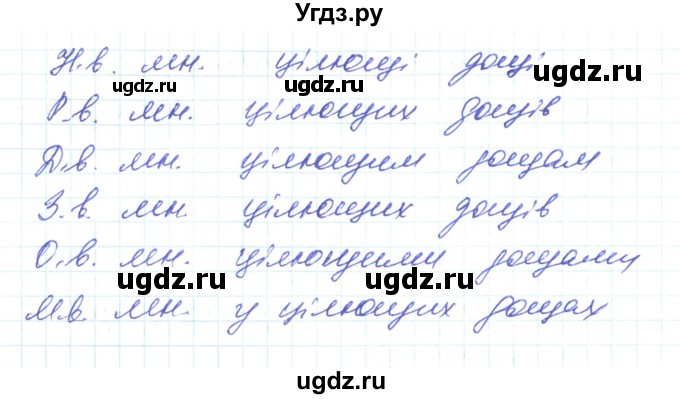 Угдз.ру
Н.в. мн. цілющі дощі
ugdz.ru ugdz.ru
Р.в. мн. цілющих дощів
Д.в. мн. цілющим дощам
ugdz.ru
З.в. мн. цілющих дощів
О.в. мн. цілющими дощами
ugdz.ru ugdz.ru
М.в. мн. у цілющих дощах
ugdz.ru